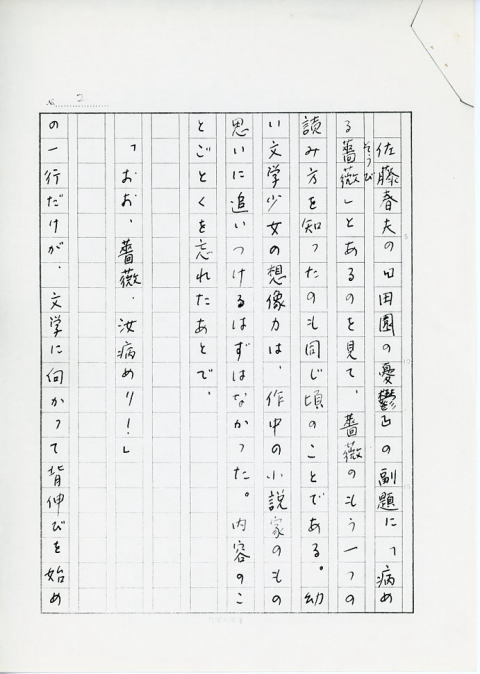 № 2
佐藤春夫の「田園の憂鬱」の副題に「病め
る薔薇」とあるのを見て、薔薇のもう一つの
そうび
読み方を知ったのも同じ頃のことである。幼
い文学少女の想像力は、作中の小説家のもの
思いに追いつけるはずはなかった。内容のこ
とごとくを忘れたあとで、
「おお、薔薇、汝病めり！」
の一行だけが、文学に向かって背伸びを始め